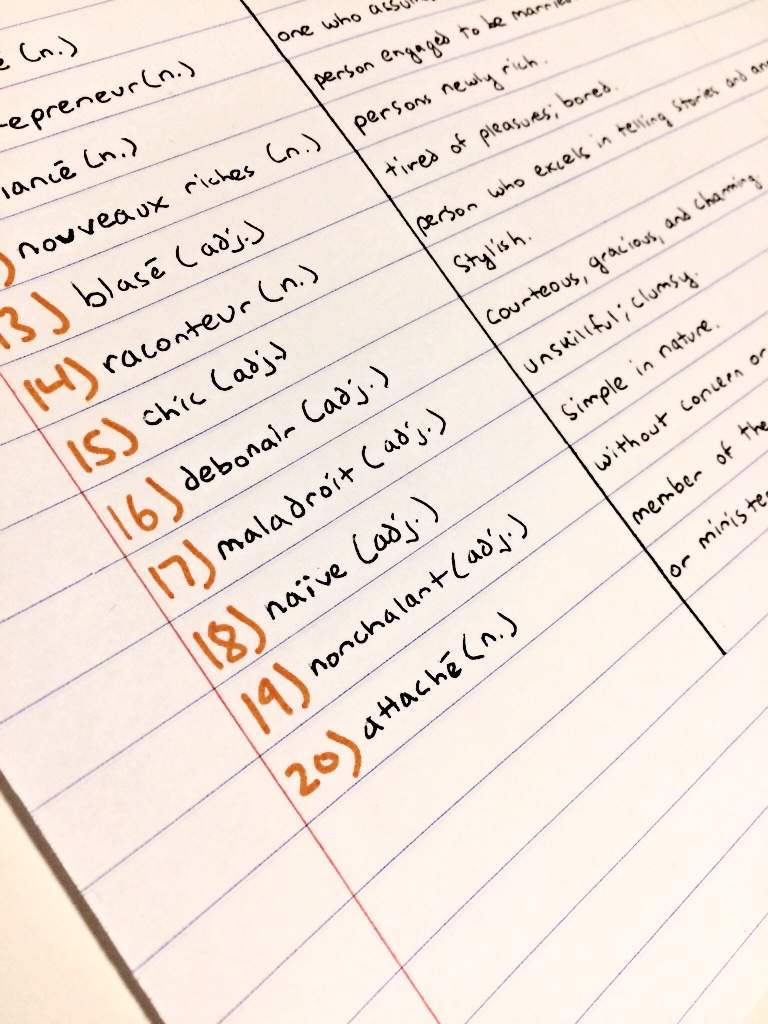 é (n.)
epreneur (n.) one who assu
iancé (n.) person engaged to be married
) nouveaux riches (n.) persons newly rich.
13) blasé (adj.) tired of pleasures; bored.
14) raconteur (n.) person who excels in telling stories and an
15) chic (adj.) Stylish.
16) debonair (adj.) Courteous, gracious, and charming.
17) maladroit (adj.) unskillful; clumsy.
18) naïve (adj.) Simple in nature.
19) nonchalant (adj.) without concern or
20) attaché (n.) member of the
or ministe